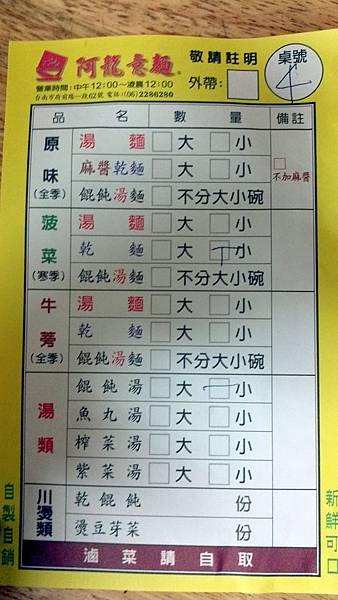 阿龍意麵®
敬請註明
桌號
4
營業時間:中午12:00~凌晨12:00
外帶: □
台南市府前路一段62號 電話:(06)2286280
品 名 數 量 備註
原味(全季)
湯麵 □大 □小
麻醬乾麵 □大 □小 □不加麻醬
餛飩湯麵 □不分大小碗
菠菜(寒季)
湯麵 □大 □小
乾麵 □大 □小
餛飩湯麵 □不分大小碗
牛蒡(全季)
湯麵 □大 □小
乾麵 □大 □小
餛飩湯麵 □不分大小碗
湯類
餛飩湯 □大 □小
魚丸湯 □大 □小
榨菜湯 □大 □小
紫菜湯 □大 □小
川燙類
乾餛飩 份
燙豆芽菜 份
滷菜請自取
自製自銷
新鮮可口